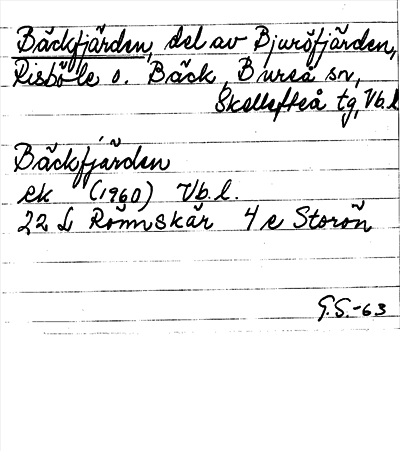 Bäckfjärden, del av Bjuröfjärden,
Risböle o. Bäck, Bureå sn,
Skellefteå tg, Vb.l
Bäckfjärden
ek (1960) Vb.l.
22 L Rönnskär 4 e Storön
G.S.-63